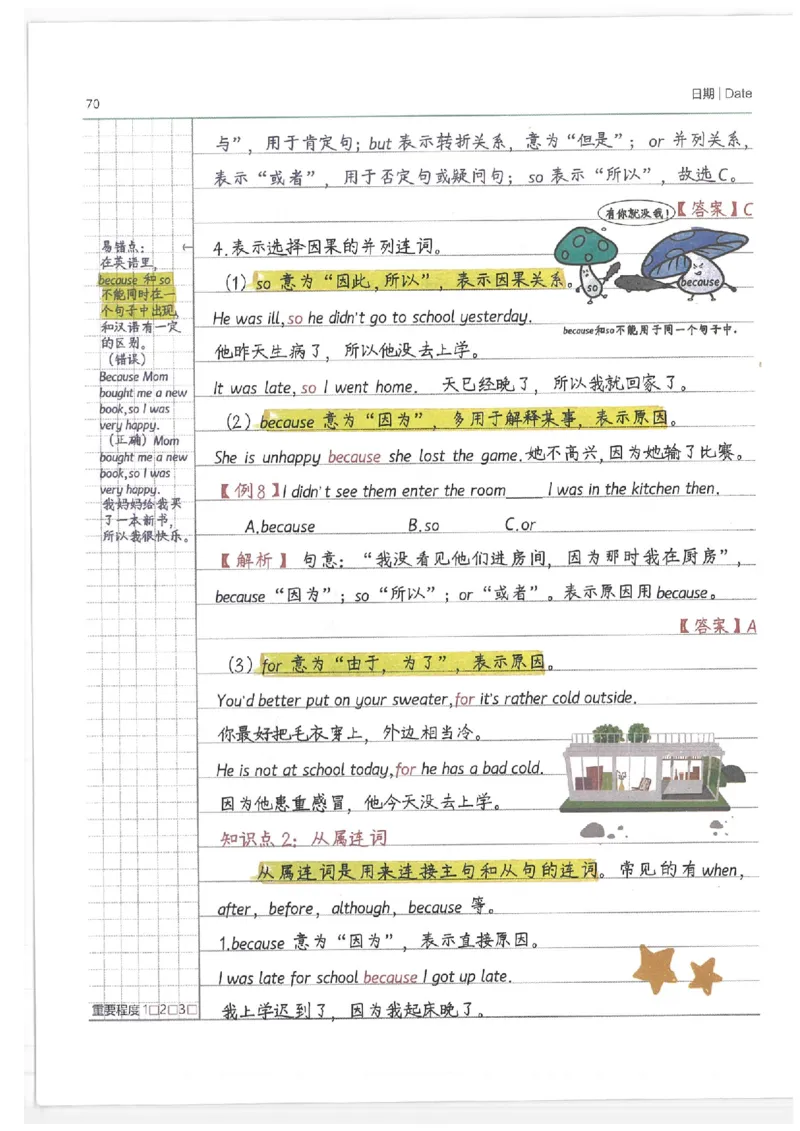 70
日期 | Date
与”，用于肯定句；but 表示转折关系，意为“但是”；or 并列关系，
表示“或者”，用于否定句或疑问句；so 表示“所以”，故选C。
有你就没我！
【答案】C
易错点：
在英语里，
because 和 so
不能同时在一
个句子中出现，
和汉语有一定
的区别。
（错误）
Because Mom
bought me a new
book,so I was
very happy.
（正确）Mom
bought me a new
book,so I was
very happy.
我妈妈给我买
了一本新书，
所以我很快乐。
←
4.表示选择因果的并列连词。
（1）so 意为“因此，所以”，表示因果关系。
so
because
because和so不能用于同一个句子中.
He was ill,so he didn't go to school yesterday.
他昨天生病了，所以他没去上学。
It was late, so I went home. 天已经晚了，所以我就回家了。
（2）because 意为“因为”，多用于解释某事，表示原因。
She is unhappy because she lost the game.她不高兴,因为她输了比赛。
【例8】I didn't see them enter the room____ I was in the kitchen then.
A.because B.so C.or
【解析】句意：“我没看见他们进房间，因为那时我在厨房”，
because“因为”；so“所以”；or“或者”。表示原因用because。
【答案】A
（3）for 意为“由于，为了”，表示原因。
You'd better put on your sweater,for it's rather cold outside.
你最好把毛衣穿上，外边相当冷。
He is not at school today,for he has a bad cold.
因为他患重感冒，他今天没去上学。
知识点2：从属连词
从属连词是用来连接主句和从句的连词。常见的有when，
after，before，although，because 等。
1.because 意为“因为”，表示直接原因。
I was late for school because I got up late.
我上学迟到了，因为我起床晚了。
重要程度 1□2□3□